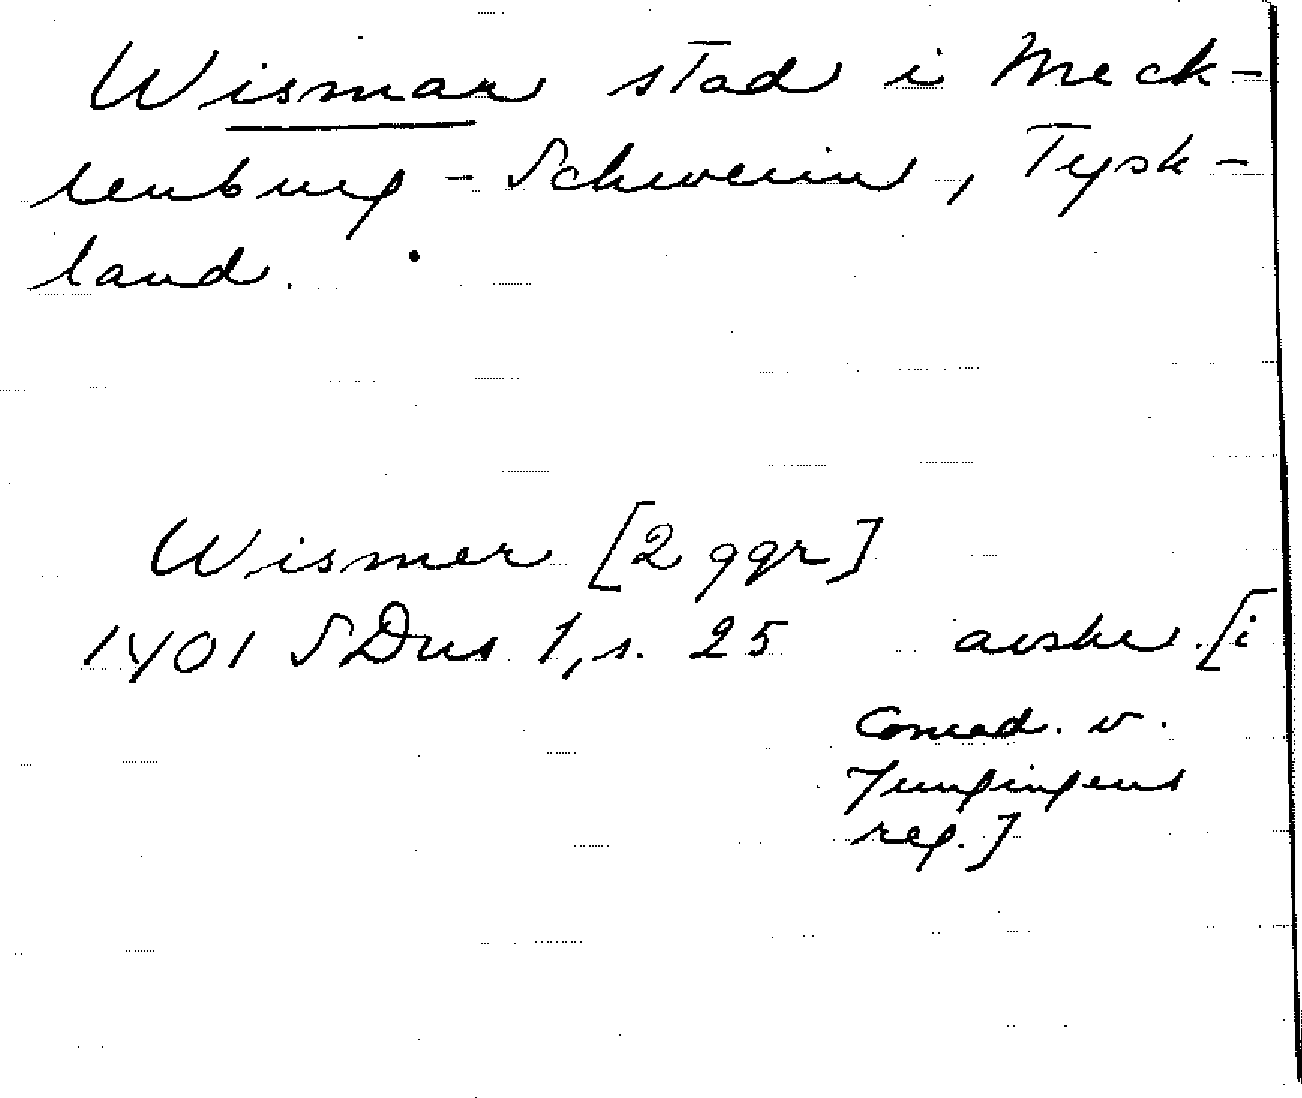 Wismar stad i Meck-
lenburg - Schwerin, Tysk-
land.
Wismer [2 ggr]
1401 SDns 1, s. 25 avskr. [i
Conrad. v.
Jungingens
reg.]